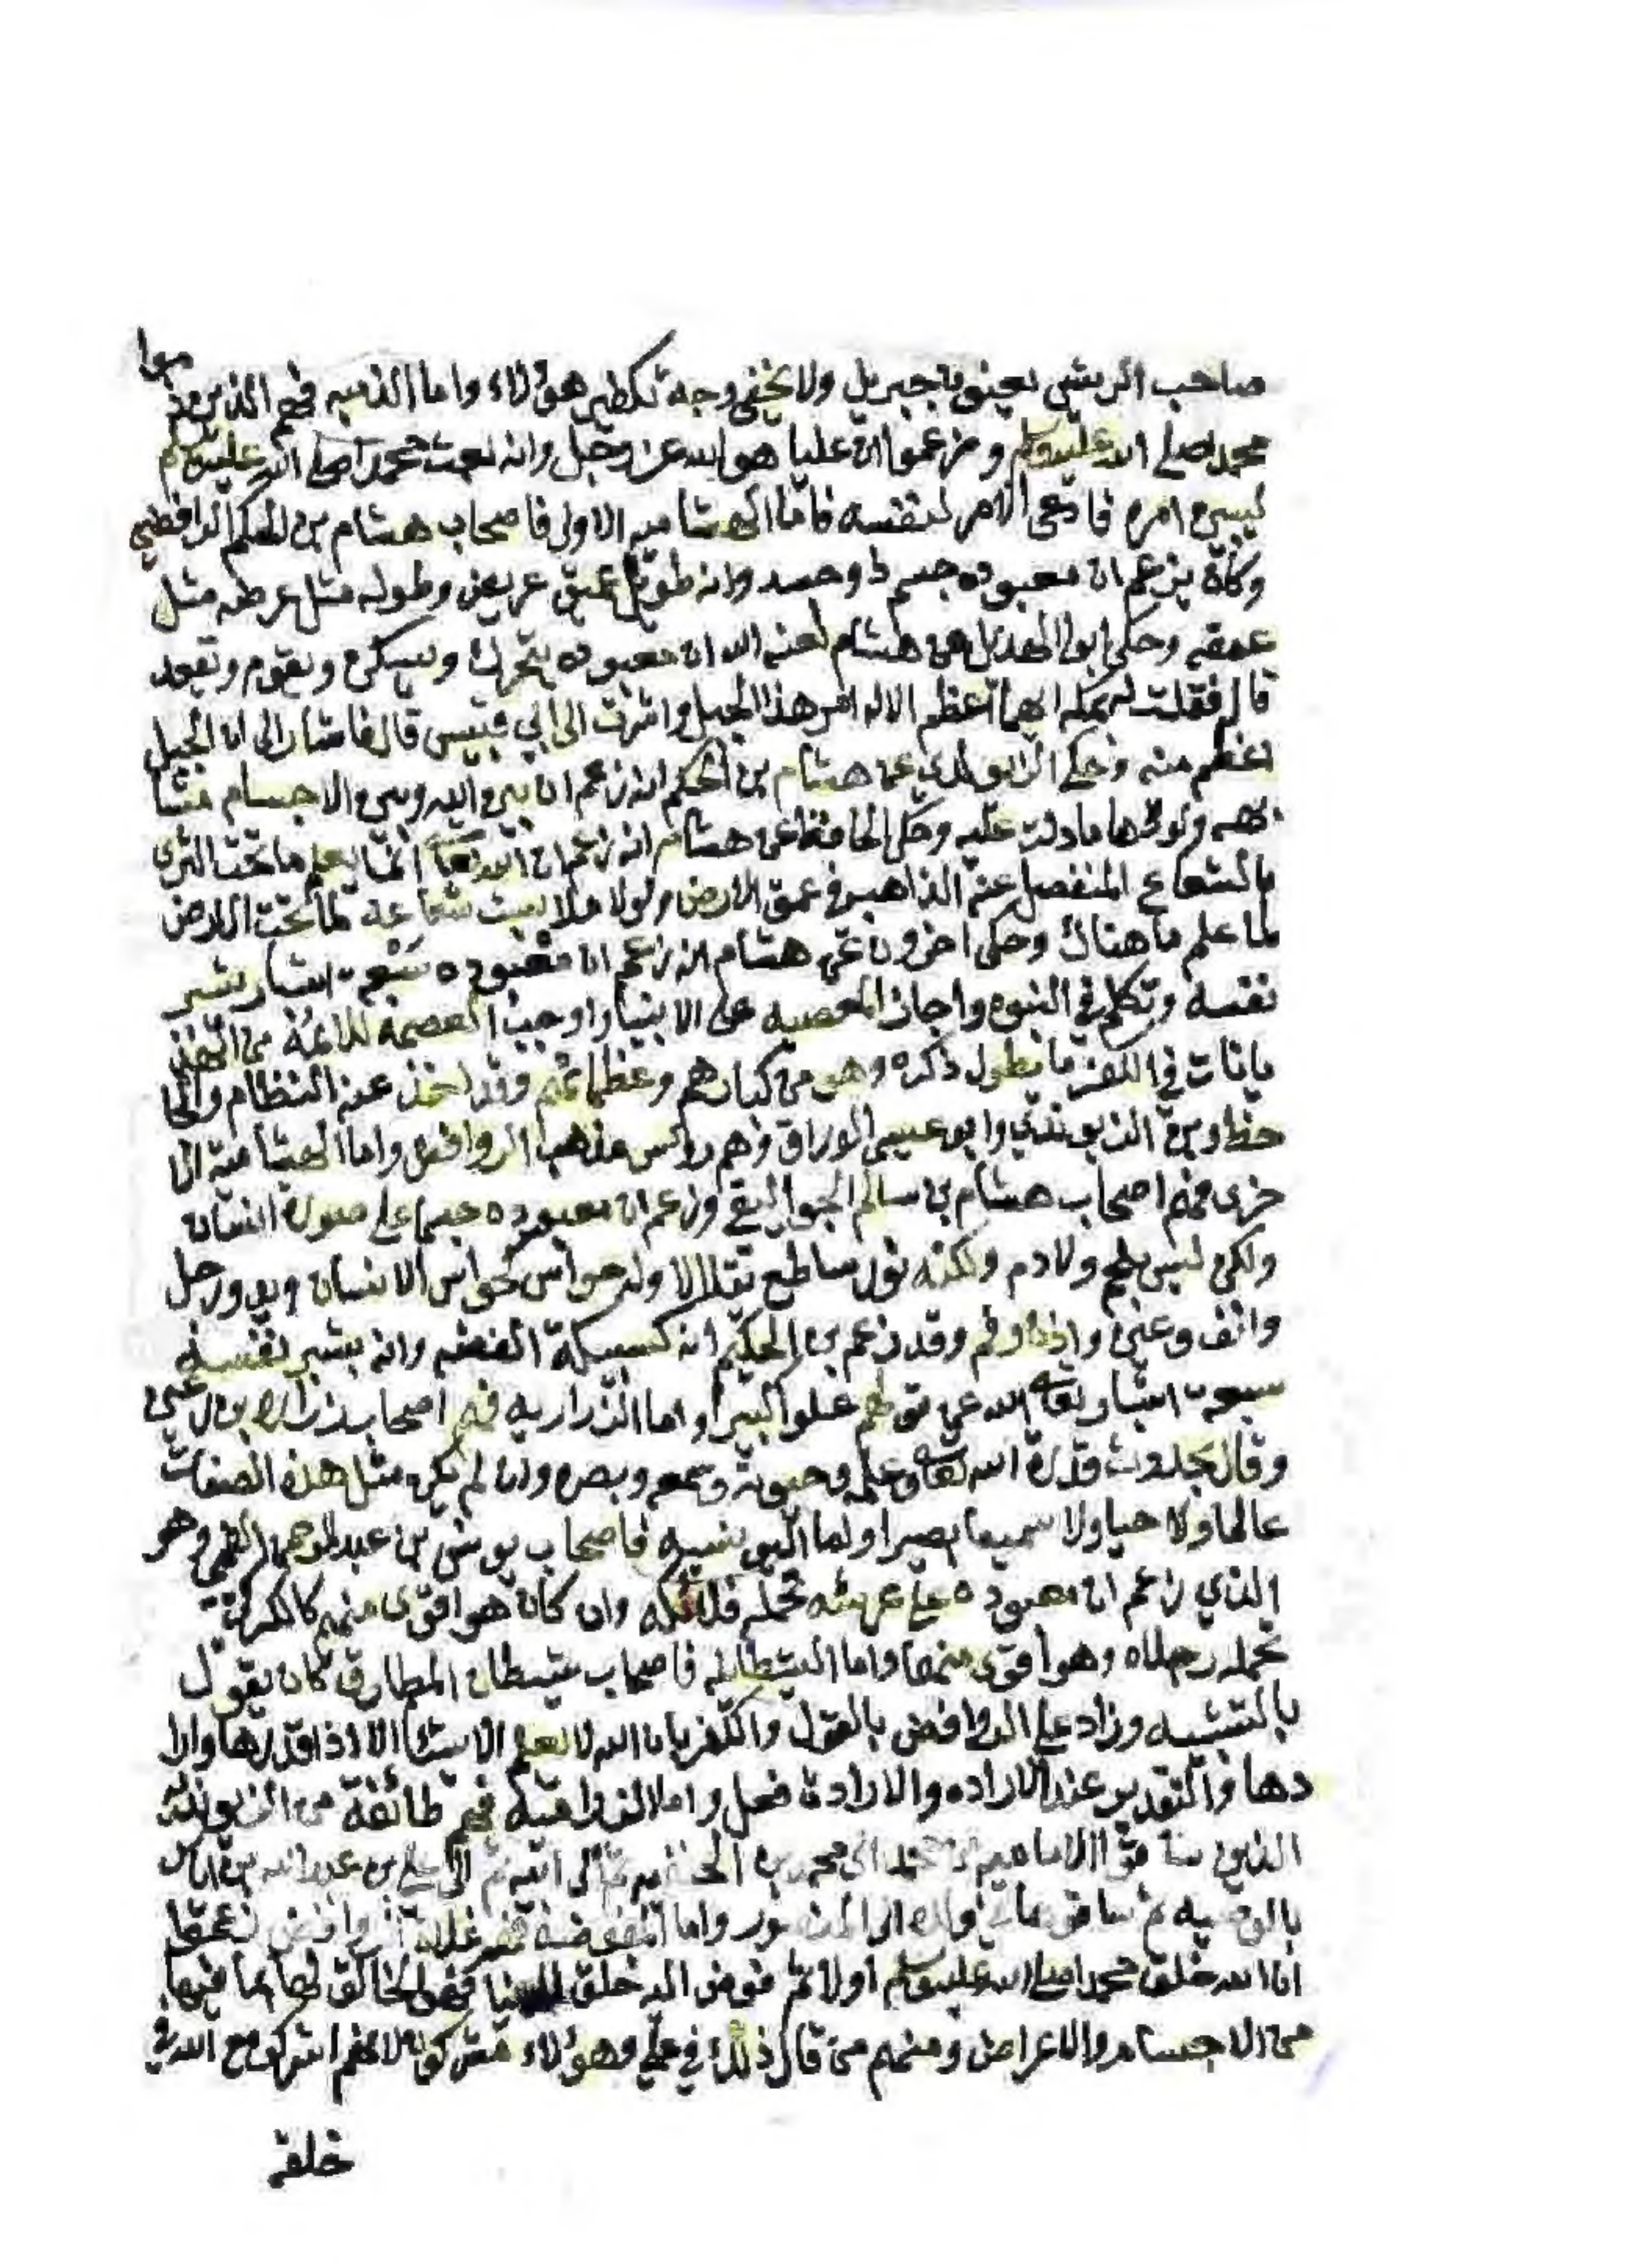 صاحب الريش يعنون جبريل ولا يخفى وجه تكفير هؤلاء واما الذميه فهم الذين ذموا
محمد صلى الله عليه وسلم وزعموا ان عليا هو الله عز وجل وانه بعث محمدا صلى الله عليه وسلم
ليبين امره فادعى الامر لنفسه فاما الهشاميه الاولى فاصحاب هشام بن الحكم الرافضي
وكان يزعم ان معبوده جسم ذو حسد وانه طويل عميق عريض وطوله مثل عرضه مثل
عمقه وحكى ابو الهذيل عن هشام لعنه الله ان معبوده يتحرك ويسكن ويقوم ويقعد
قال فقلت له بمكه ايهما اعظم الاله ام هذا الجبل واشرت الى ابي قبيس قال فاشار الى ان الجبل
اعظم منه وحكى الراوندي عن هشام بن الحكم انه زعم ان بين الله وبين الاجسام مشا
بهه ولولاها ما دلت عليه وحكى الحافظ عن هشام انه زعم ان الله تعا انما يعلم ما تحت الثرى
بالشعاع المنفصل عنه الذاهب في عمق الارض ولولا ملابست شعاعه لما تحت الارض
لما علم ما هناك وحكى اخرون عن هشام انه زعم ان معبوده سبعة اشبار بشبر
نفسه وتكلم في النبوه واجاز المعصيه على الانبياء واوجب العصمه للائمه
في الكفر ما يطول ذكره وهو من كبارهم وعظمائهم وقد اخذ عنه النظام والحا
حظ وبن الريوندي وابو عيسى الوراق وهم روس مذهب الروافض واما الهشاميه الا
خرى فهم اصحاب هشام بن سالم الجواليقي وزعم ان معبوده جسما على صورة انسان
ولكن ليس بلحم ولا دم ولكنه نور ساطع يتلالا وله حواس كحواس الانسان ويد ورجل
وانف وعين واذن وفم وقد زعم بن الحكم انه كسبيكة الفضه وانه بشبر نفسه
سبعة اشبار تعا الله عن قولهم علوا كبيرا واما الزراريه فهم اصحاب زراره بن اعين
وقال بحدوث قدرة الله تعا وعلمه وحيوته وسمعه وبصره وان لم يكن مثل هذه الصفات
عالما ولا حيا ولا سميعا بصيرا واما اليونسيه فاصحاب يونس بن عبد الرحمن القمي وهو
الذي زعم ان معبوده على عرشه تحمله ملائكه وان كان هو اقوى منهم كالكركي
تحمله رجلاه وهو اقوى منهما واما الشيطانيه فاصحاب شيطان الطارق كان يقول
بالتشبيه وزاد على الروافض بالقول والكفر بان الله لا يعلم الاشياء الا اذا قدرها وارا
دها والتقدير عند الاراده والارادة فعل واما الزراميه فهم طائفة من الريوندية
الذين ساقوا الامامه الى محمد بن الحنفيه ثم الى ابنه ثم الى علي بن عبد الله بن عباس
بالوصيه ثم ساقوها في ولده الى المنصور واما المفوضة فمن غلاة الروافض زعموا
ان الله خلق محمدا صلى الله عليه وسلم اولا ثم فوض اليه خلق الدنيا فهو الخالق لها بما فيها
من الاجسام والاعراض ومنهم من قال ذلك في علي وهؤلاء مشركون لانهم اشركوا مع الله في
خلقه